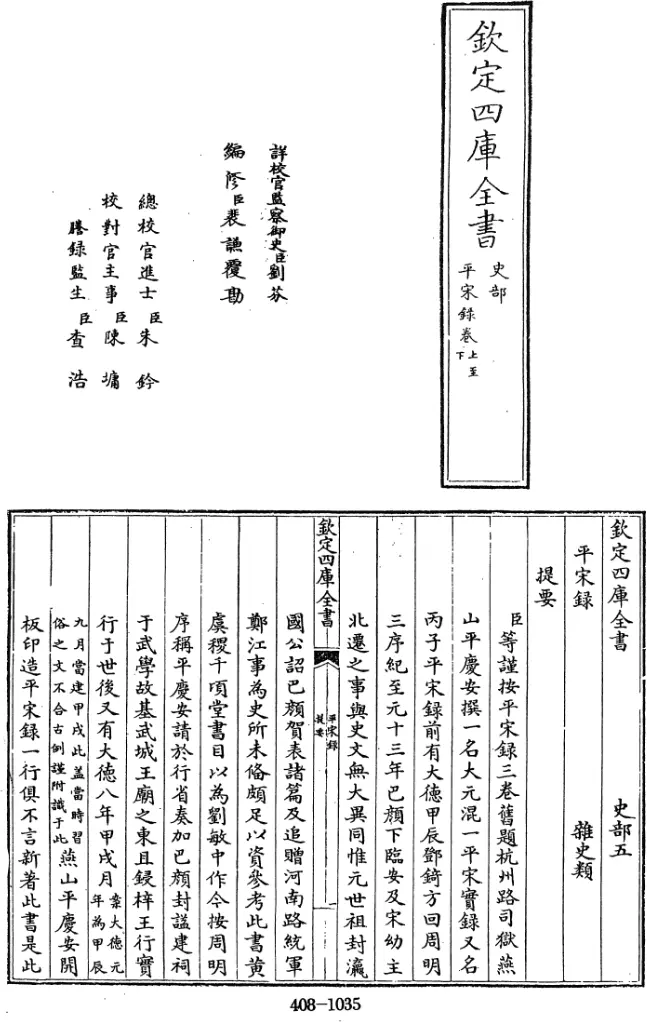 欽定四庫全書
史部
平宋錄卷上至下
詳校官監察御史臣劉芬
編修臣裴謙覆勘
總校官進士臣朱鈐
校對官主事臣陳墉
謄錄監生臣查浩
欽定四庫全書
史部五
平宋錄
雜史類
提要
臣等謹按平宋錄三卷舊題杭州路司獄燕
山平慶安撰一名大元混一平宋實錄又名
丙子平宋錄前有大德甲辰鄧錡方回周明
三序紀至元十三年巴顏下臨安及宋幼主
北遷之事與史文無大異同惟元世祖封瀛
欽定四庫全書
平宋錄
提要
國公詔巴顏賀表諸篇及追贈河南路統軍
鄭江事為史所未備頗足以資參考此書黄
虞稷千頃堂書目以為劉敏中作今按周明
序稱平慶安請於行省奏加巴顏封謚建祠
于武學故基武城王廟之東且鋟梓王行實
行于世後又有大德八年甲戌月案大德元年為甲辰
九月當建甲戌此盖當時習俗之文不合古例謹附識于此燕山平慶安開
板印造平宋錄一行俱不言新著此書是此
408-1035